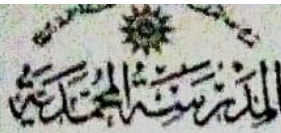 المدرسة المحمدية